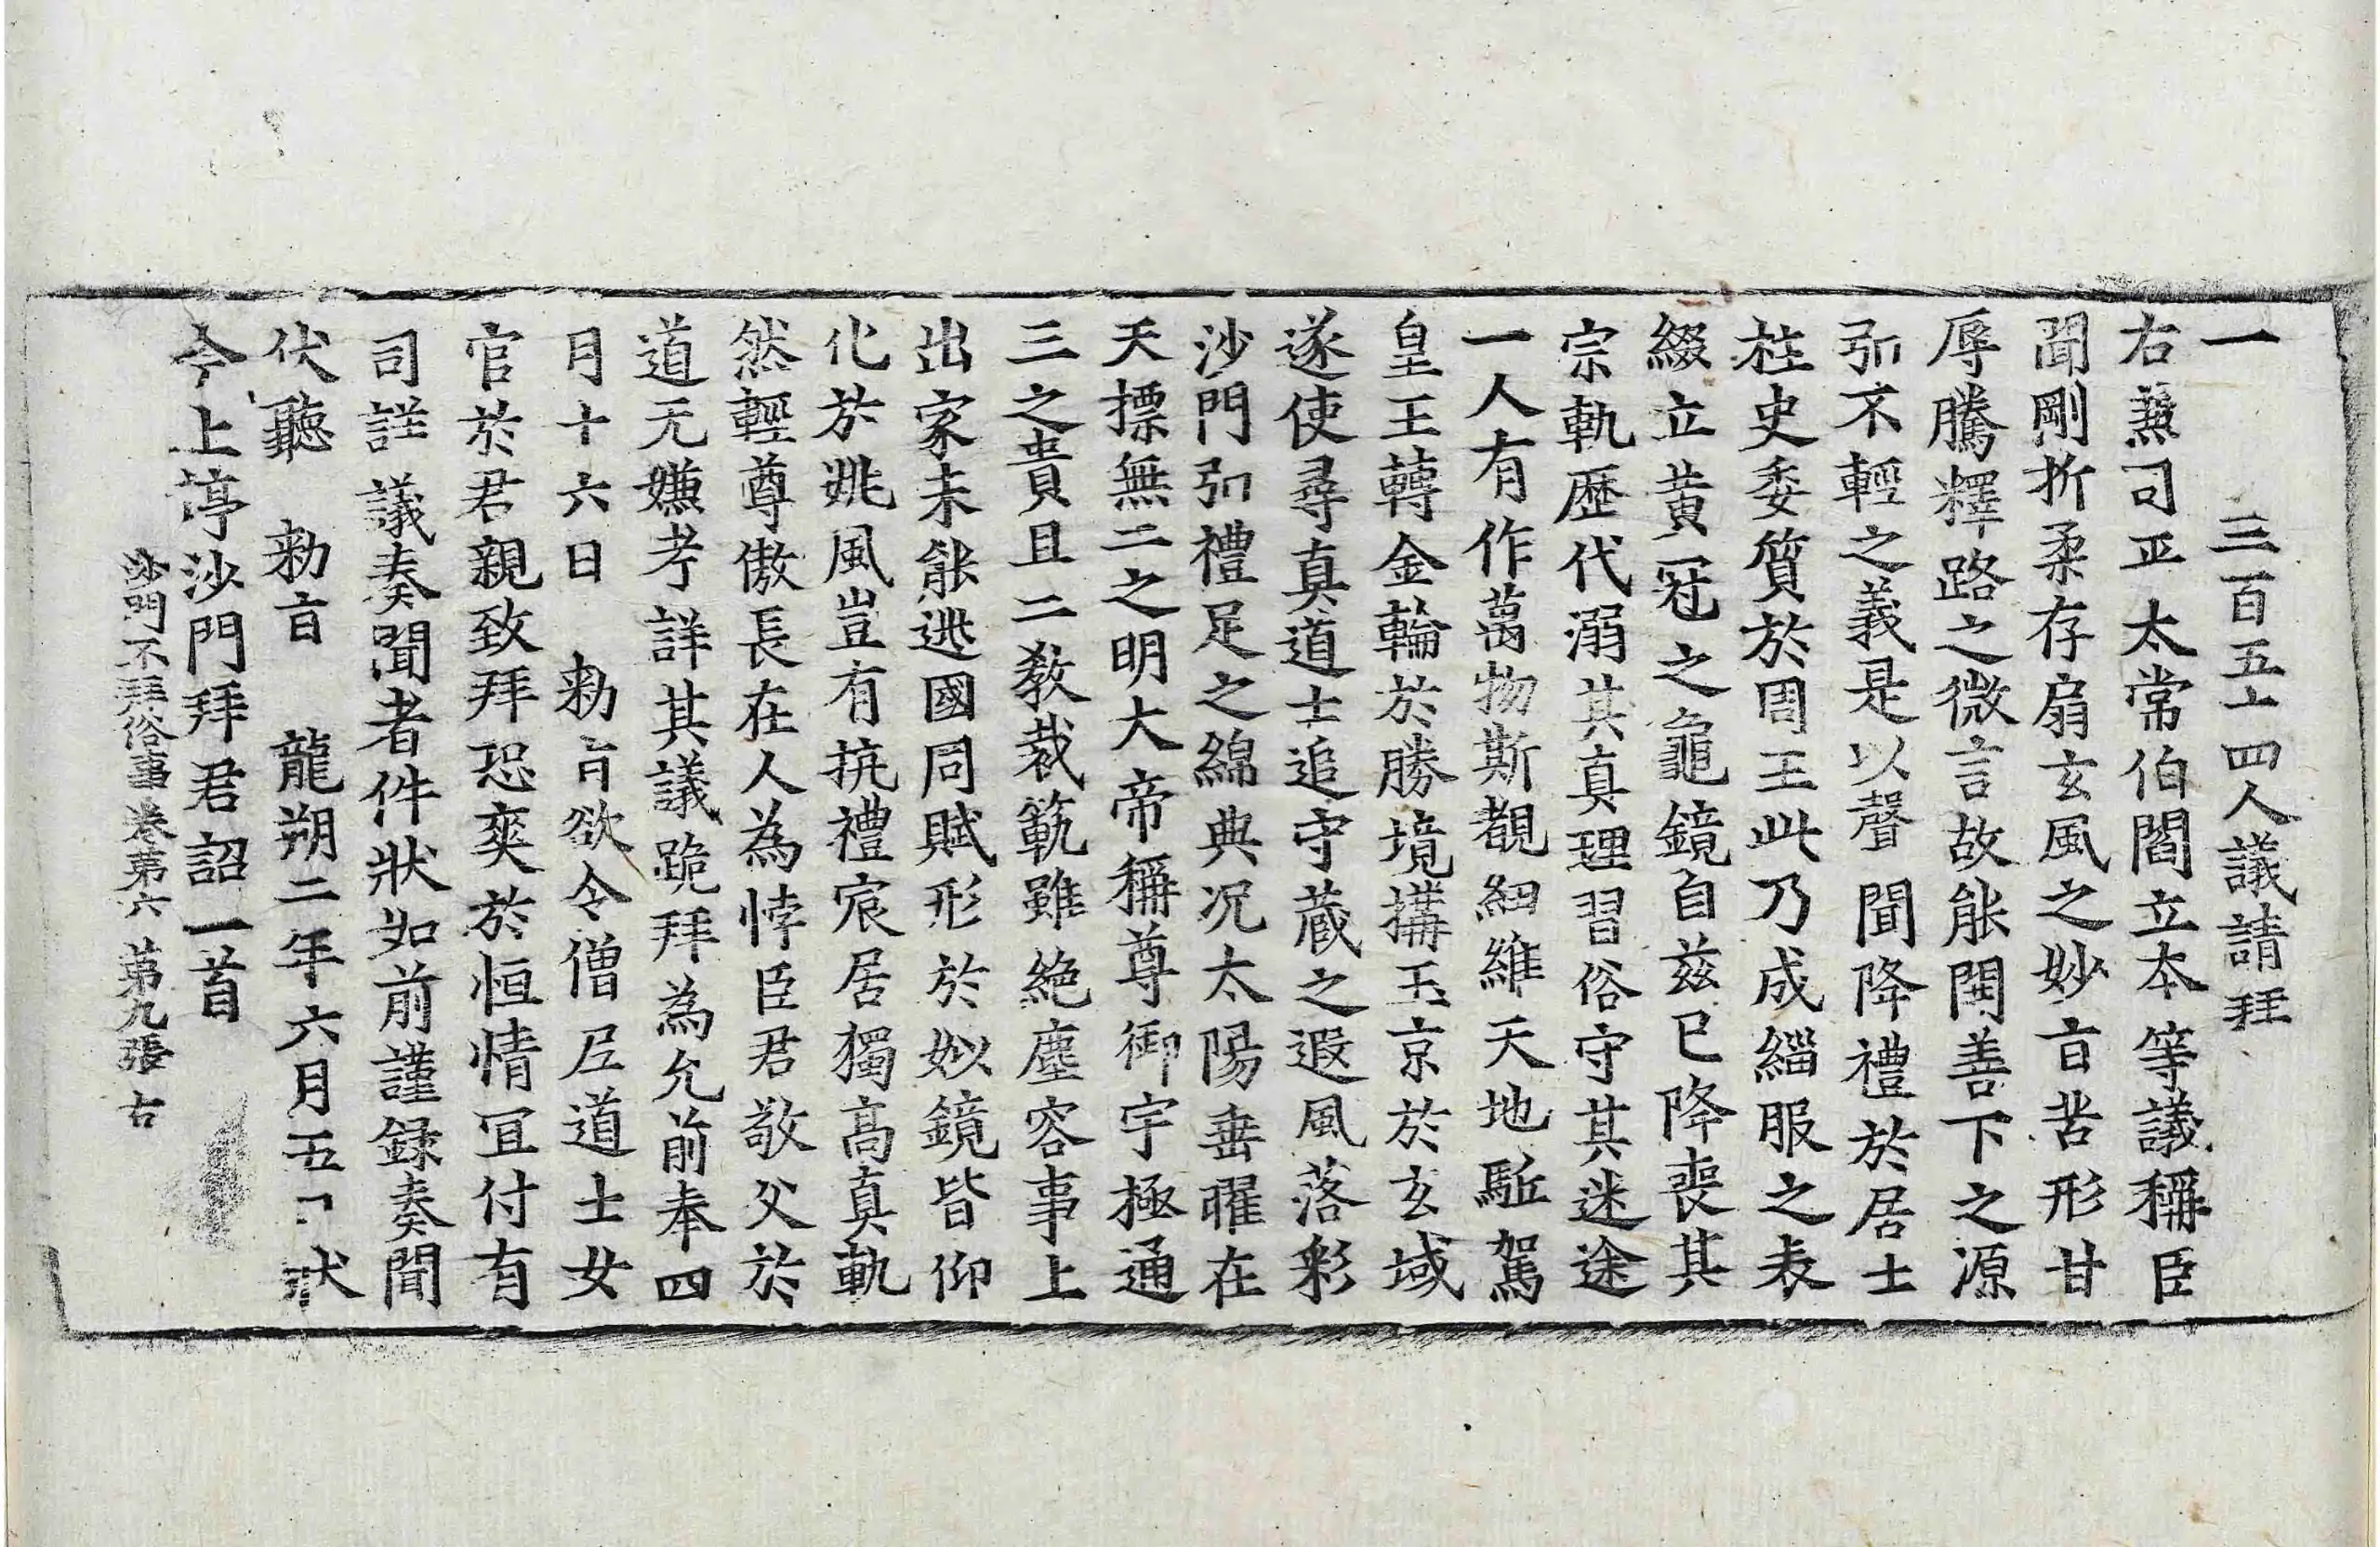 一　三百五十四人議請拜
右兼司平太常伯閻立本等議稱臣
聞剛折柔存扇玄風之妙旨苦形甘
辱騰釋路之微言故能開善下之源
弘不輕之義是以聲聞降禮於居士
柱史委質於周王此乃成緇服之表
綴立黃冠之龜鏡自茲已降喪其
宗軌歷代溺其真理習俗守其迷途
一人有作萬物斯覩紐維天地駈駕
皇王轉金輪於勝境搆玉京於玄域
遂使尋真道士追守藏之遐風落彩
沙門弘禮足之綿典况太陽垂曜在
天標無二之明大帝稱尊御宇極通
三之貴且二教裁範雖絕塵容事上
出家未能逃國同賦形於姒鏡皆仰
化於姚風豈有抗禮宸居獨高真軌
然輕尊傲長在人為悖臣君敬父於
道无嫌考詳其議跪拜為允前奉四
月十六日　勑旨欲令僧尼道士女
官於君親致拜恐爽於恒情宜付有
司詳議奏聞者件狀如前謹録奏聞
伏聽　勑旨　龍朔二年六月五日狀
今上停沙門拜君詔一首
沙門不拜俗事卷第六　第九張　古